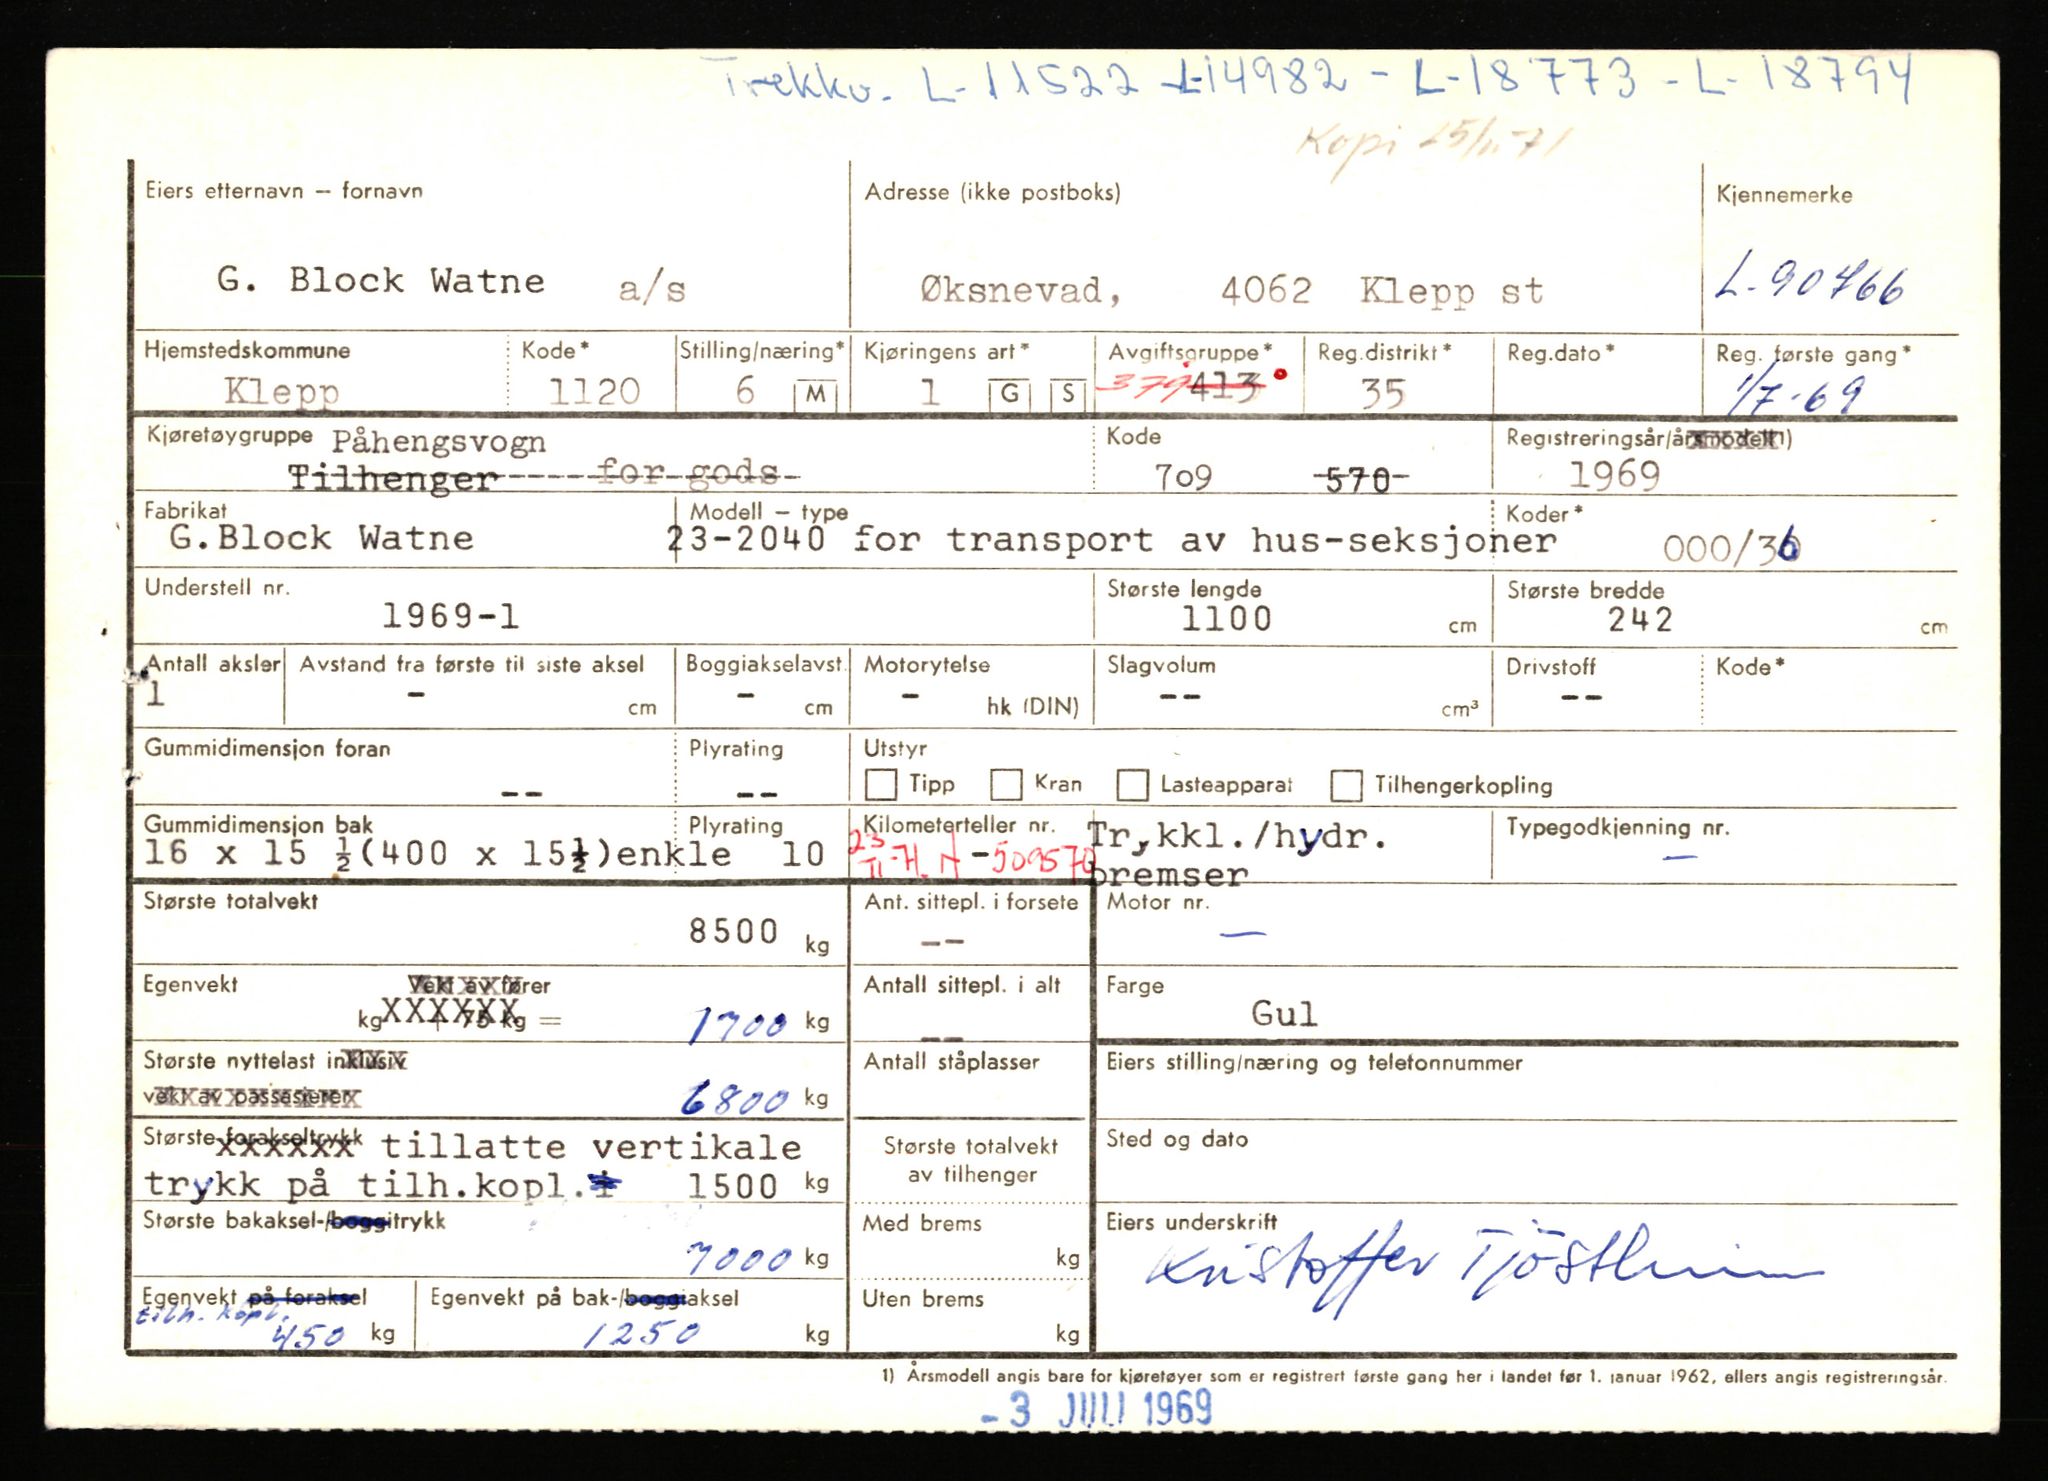 Trekkv. L-11522 - L-14982 - L-18773 - L-18794
Kopi 25/11-71
Eiers etternavn — fornavn
Adresse (ikke postboks)
Kjennemerke
G. Block Watne a/s
Øksnevad, 4062 Klepp st
L-90766
Hjemstedskommune
Kode*
Stilling/næring*
Kjøringens art*
Avgiftsgruppe*
Reg.distrikt*
Reg.dato*
Reg. første gang*
Klepp
1120
6 M
1 G S
379 413
35
1/7-69
Kjøretøygruppe Påhengsvogn
Kode
Registreringsår/årsmodell 1)
Tilhenger-----for gods-
7o9 -570-
1969
Fabrikat
Modell — type
Koder*
G.Block Watne
23-2040 for transport av hus-seksjoner
000/36
Understell nr.
Største lengde
Største bredde
1969-1
1100 cm
242 cm
Antall aksler
Avstand fra første til siste aksel
Boggiakselavst.
Motorytelse
Slagvolum
Drivstoff
Kode*
1
- cm
- cm
- hk (DIN)
-- cm³
--
Gummidimensjon foran
Plyrating
Utstyr
--
--
Tipp Kran Lasteapparat Tilhengerkopling
Gummidimensjon bak
Plyrating
Kilometerteller nr.
Tr,kkl./hydr.
Typegodkjenning nr.
16 x 15 ½(400 x 15½)enkle 10
23/11-71. N -509570
bremser
—
Største totalvekt
Ant. sittepl. i forsete
Motor nr.
8500 kg
--
—
Egenvekt
Vekt av fører
Antall sittepl. i alt
Farge
kg XXXXXX + 75 kg = 1700 kg
--
Gul
Største nyttelast inklusiv
Antall ståplasser
Eiers stilling/næring og telefonnummer
vekt av passasjerer 6800 kg
Største forakseltrykk tillatte vertikale
Største totalvekt
av tilhenger
Sted og dato
trykk på tilh.kopl. 1500 kg
Største bakaksel-/boggitrykk
Med brems
Eiers underskrift
7000 kg
kg
Kristoffer Tjöstheim
Egenvekt på foraksel
Egenvekt på bak-/boggiaksel
Uten brems
tilh. kopl.
450 kg
1250 kg
kg
1) Årsmodell angis bare for kjøretøyer som er registrert første gang her i landet før 1. januar 1962, ellers angis registreringsår.
- 3 JULI 1969